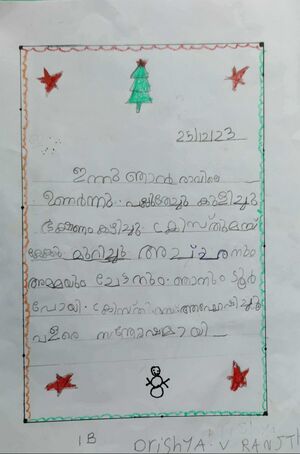 25/12/23
ഇന്നു ഞാൻ രാവിലെ
ഉണർന്നു. പല്ലുതേച്ചു കുളിച്ചു
ഭക്ഷണം കഴിച്ചു. ക്രിസ്തുമസ്
കേക്ക് മുറിച്ചു അച്ചനും
അമ്മയും ചേട്ടനും ഞാനും ടൂർ
പോയി. ക്രിസ്തുമസ് ആഘോഷിച്ചു
വളരെ സന്തോഷമായി
1B
OriShYA. V RANJTh